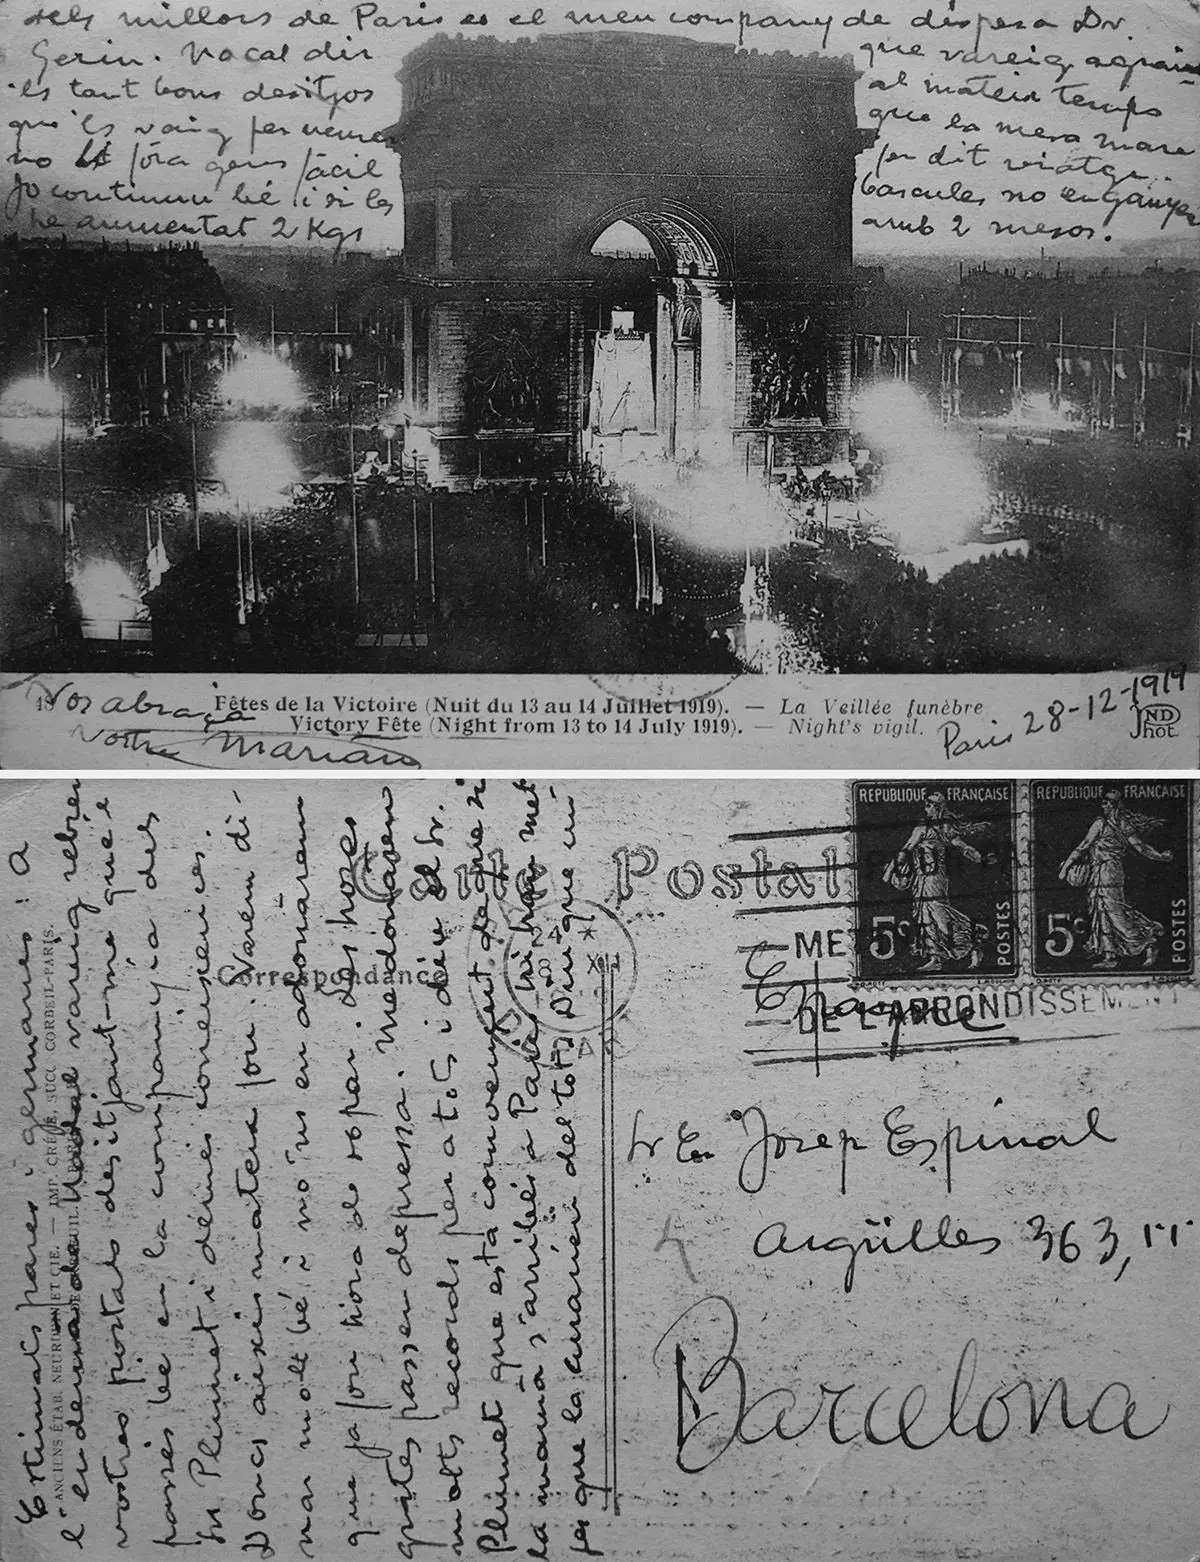 dels millors de Paris es el meu company de dispesa Dr.
Gerin. No cal dir
que vareig agrair
els tant bons desitjos
al mateix temps
que 'ls vaig fer veure
que la meva mare
no li fóra gens fàcil
fer dit viatge.
Jo continuu bé i si les
bascules no enganyen
he aumentat 2 Kgs
amb 2 mesos.
Vos abraça
Votre Mariano
48
Fêtes de la Victoire (Nuit du 13 au 14 Juillet 1919). — La Veillée funèbre
Victory Fête (Night from 13 to 14 July 1919). — Night's vigil.
Paris 28-12-1919
ND
Phot
Carte Postale
Correspondance
ANCIENS ÉTAB. NEURDEIN ET CIE. — IMP. CRÉTÉ, SUCC. CORBEIL-PARIS.
Estimats pares i germanes: A
l'endemà de Nadal vareig rebre
vostres postals desitjant-me que 'l
passés bé en la companyia dels
Srs Plumet i demés coneixences.
Doncs aixís mateix fou. Varem di-
nar molt bé i no 'ns en adonàrem
que ja fou hora de sopar. Les hores
grates passen depressa. Me donaren
molts recorts per a tots i deu el Sr.
Plumet que esta convençut de que si
la mamà s'arribés a Paris hi ha met
ges que la curarien del tot. Diu que un
REPUBLIQUE FRANÇAISE
5c
POSTES
REPUBLIQUE FRANÇAISE
5c
POSTES
DE L'ARRONDISSEMENT
Espagne
Sr En Josep Espinal
Argüelles 363, 1er
Barcelona